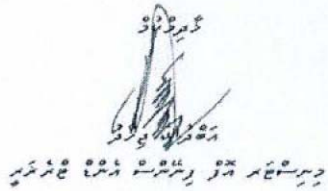 ޚާދިމްކުމް
އަބްދުﷲ ޖިހާދު
މިނިސްޓަރ އޮފް ފިނޭންސް އެންޑް ޓްރެޜަރީ